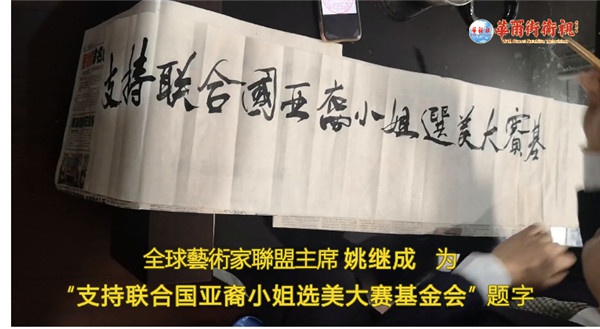 華爾街衛視
支持联合國亚裔小姐選美大賽基
全球藝術家聯盟主席 姚继成 为
“支持联合国亚裔小姐选美大赛基金会”题字